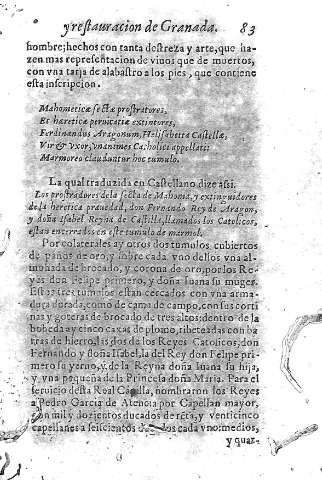 y restauracion de Granada. 83
hombre; hechos con tanta destreza y arte, que ha-
zen mas representacion de viuos que de muertos,
con vna tarja de alabastro a los pies, que contiene
esta inscripcion.
Mahometicæ sectæ prostratores,
Et hereticæ peruicatiæ extintores,
Ferdinandus Aragonum, Helisabetha Castellæ,
Vir & Vxor, vnanimes Catholici appellati:
Marmoreo clauduntur hoc tumulo.
La qual traduzida en Castellano dize assi.
Los prostradores de la secta de Mahoma, y extinguidores
de la heretica prauedad, don Fernando Rey de Aragon,
y doña Isabel Reyna de Castilla, llamados los Catolicos,
estan encerrados en este tumulo de marmol.
Por colaterales ay otros dos tumulos cubiertos
de paños de oro, y sobre cada vno dellos vna al-
mohada de brocado, y corona de oro, por los Re-
yes don Felipe primero, y doña Iuana su muger.
Estos tres tumulos estan cercados con vna arma-
dura dorada, como de cama de campo, con sus corti
nas y goteras de brocado de tres altos: dentro de la
bobeda ay cinco caxas de plomo, ribeteadas con ba
rras de hierro, las dos de los Reyes Catolicos, don
Fernando y doña Isabel, la del Rey don Felipe pri-
mero su yerno, y de la Reyna doña Iuana su hija,
y vna pequeña de la Princesa doña Maria. Para el
seruicio desta Real Capilla, nombraron los Reyes
a Pedro Garcia de Atencia por Capellan mayor,
con mil y dozientos ducados de reta, y veinticinco
capellanes a seiscientos cada vno: medios,
y quar-